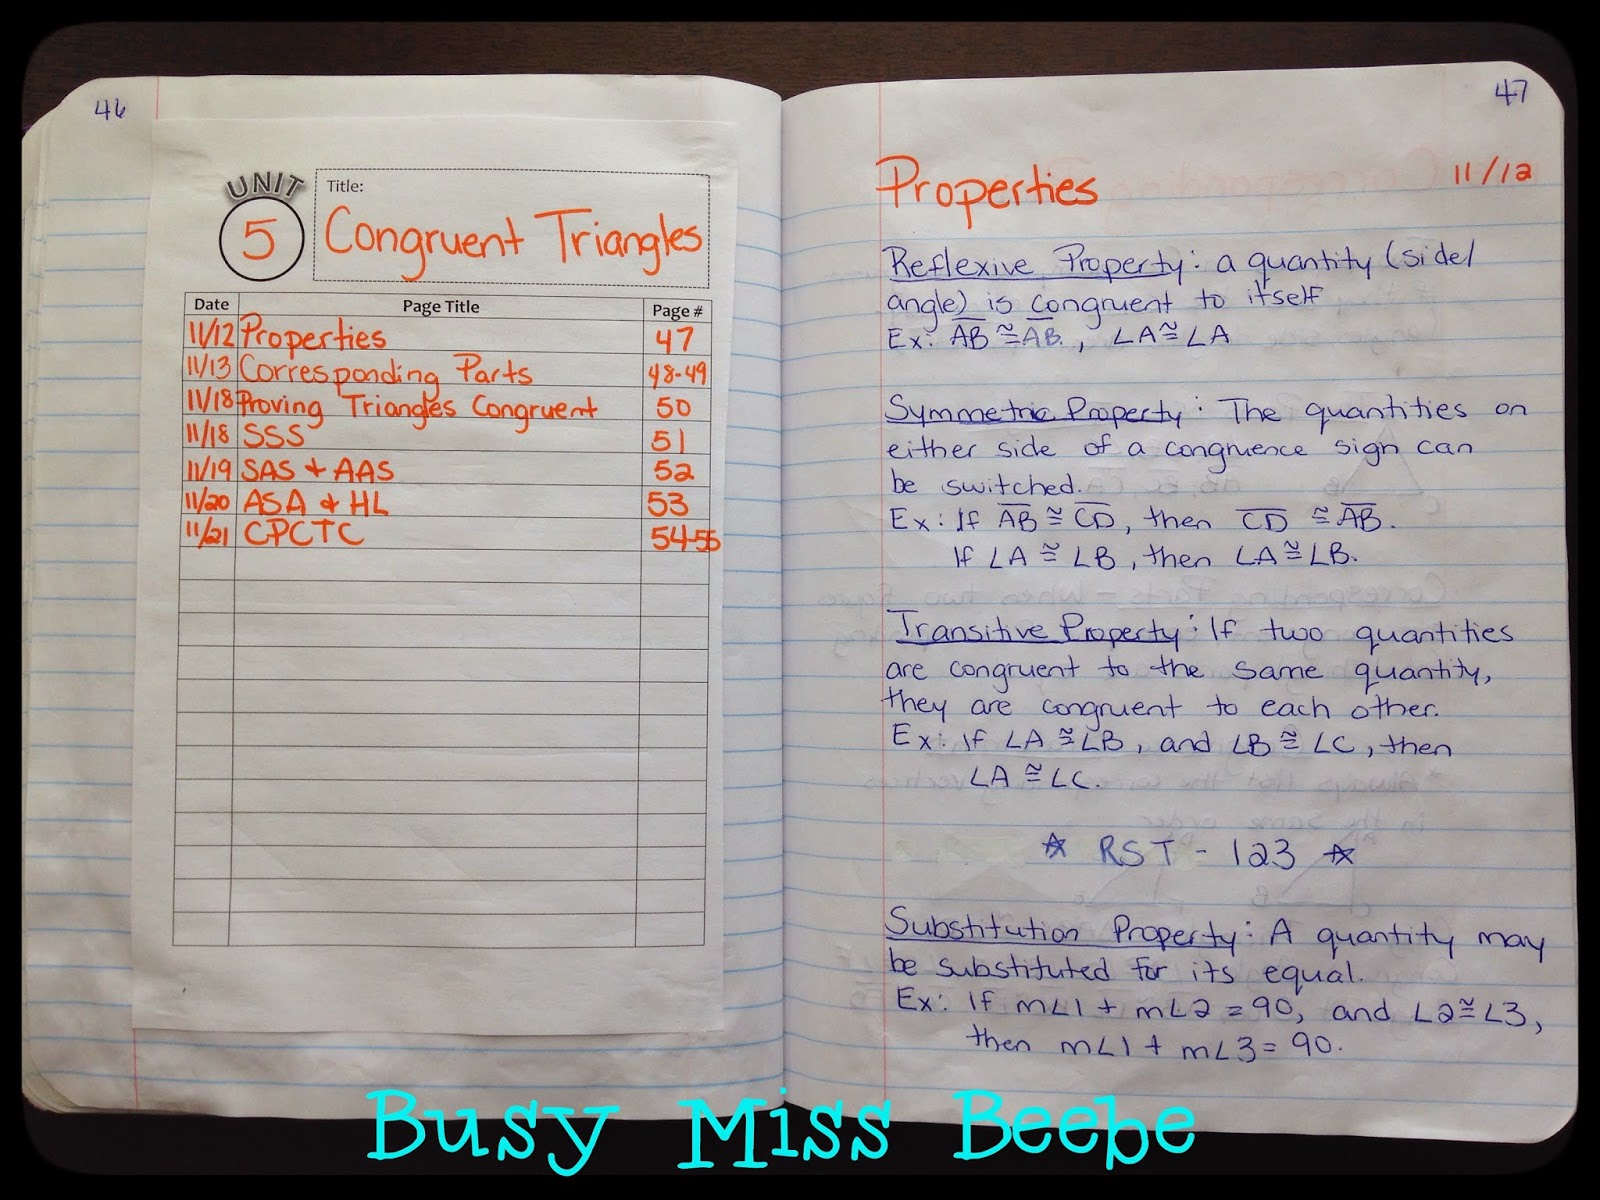 46
UNIT
5
Title:
Congruent Triangles
Date Page Title Page #
11/12 Properties 47
11/13 Corresponding Parts 48-49
11/18 Proving Triangles Congruent 50
11/18 SSS 51
11/19 SAS + AAS 52
11/20 ASA + HL 53
11/21 CPCTC 54-55
47
Properties 11/12
Reflexive Property: a quantity (side/
angle) is congruent to itself
Ex: A̅B̅ ≅ A̅B̅., ∠A ≅ ∠A
Symmetric Property: The quantities on
either side of a congruence sign can
be switched.
Ex: If A̅B̅ ≅ C̅D̅, then C̅D̅ ≅ A̅B̅.
If ∠A ≅ ∠B, then ∠A ≅ ∠B.
Transitive Property: If two quantities
are congruent to the same quantity,
they are congruent to each other.
Ex: If ∠A ≅ ∠B, and ∠B ≅ ∠C, then
∠A ≅ ∠C.
☆ RST - 123 ☆
Substitution Property: A quantity may
be substituted for its equal.
Ex: If m∠1 + m∠2 = 90, and ∠2 ≅ ∠3,
then m∠1 + m∠3 = 90.
Busy Miss Beebe